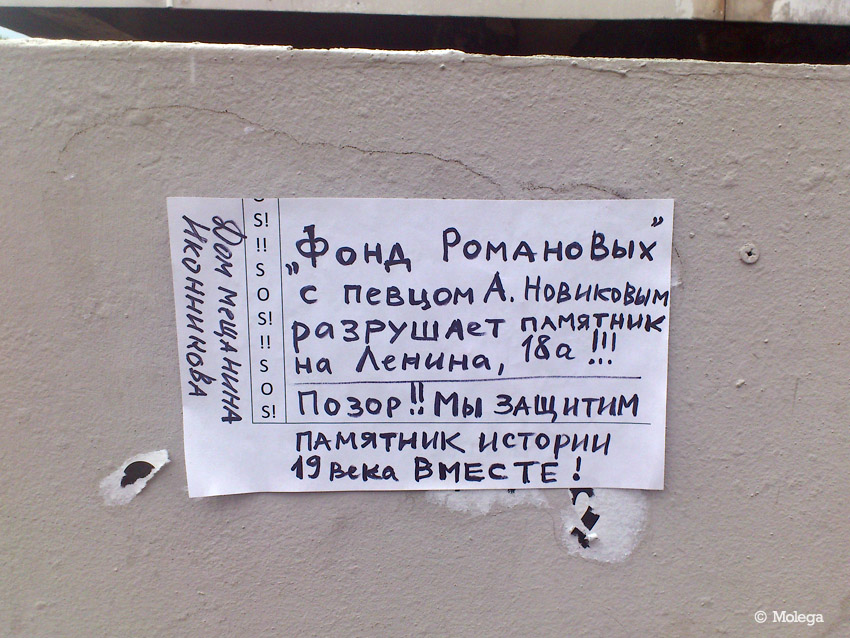 Дом мещанина
Иконникова
S!
!!
S
O
S!
!!
S
O
S!
„Фонд Романовых”
с певцом А. Новиковым
разрушает памятник
на Ленина, 18а!!!
Позор!! Мы защитим
памятник истории
19 века ВМЕСТЕ!
© Molega